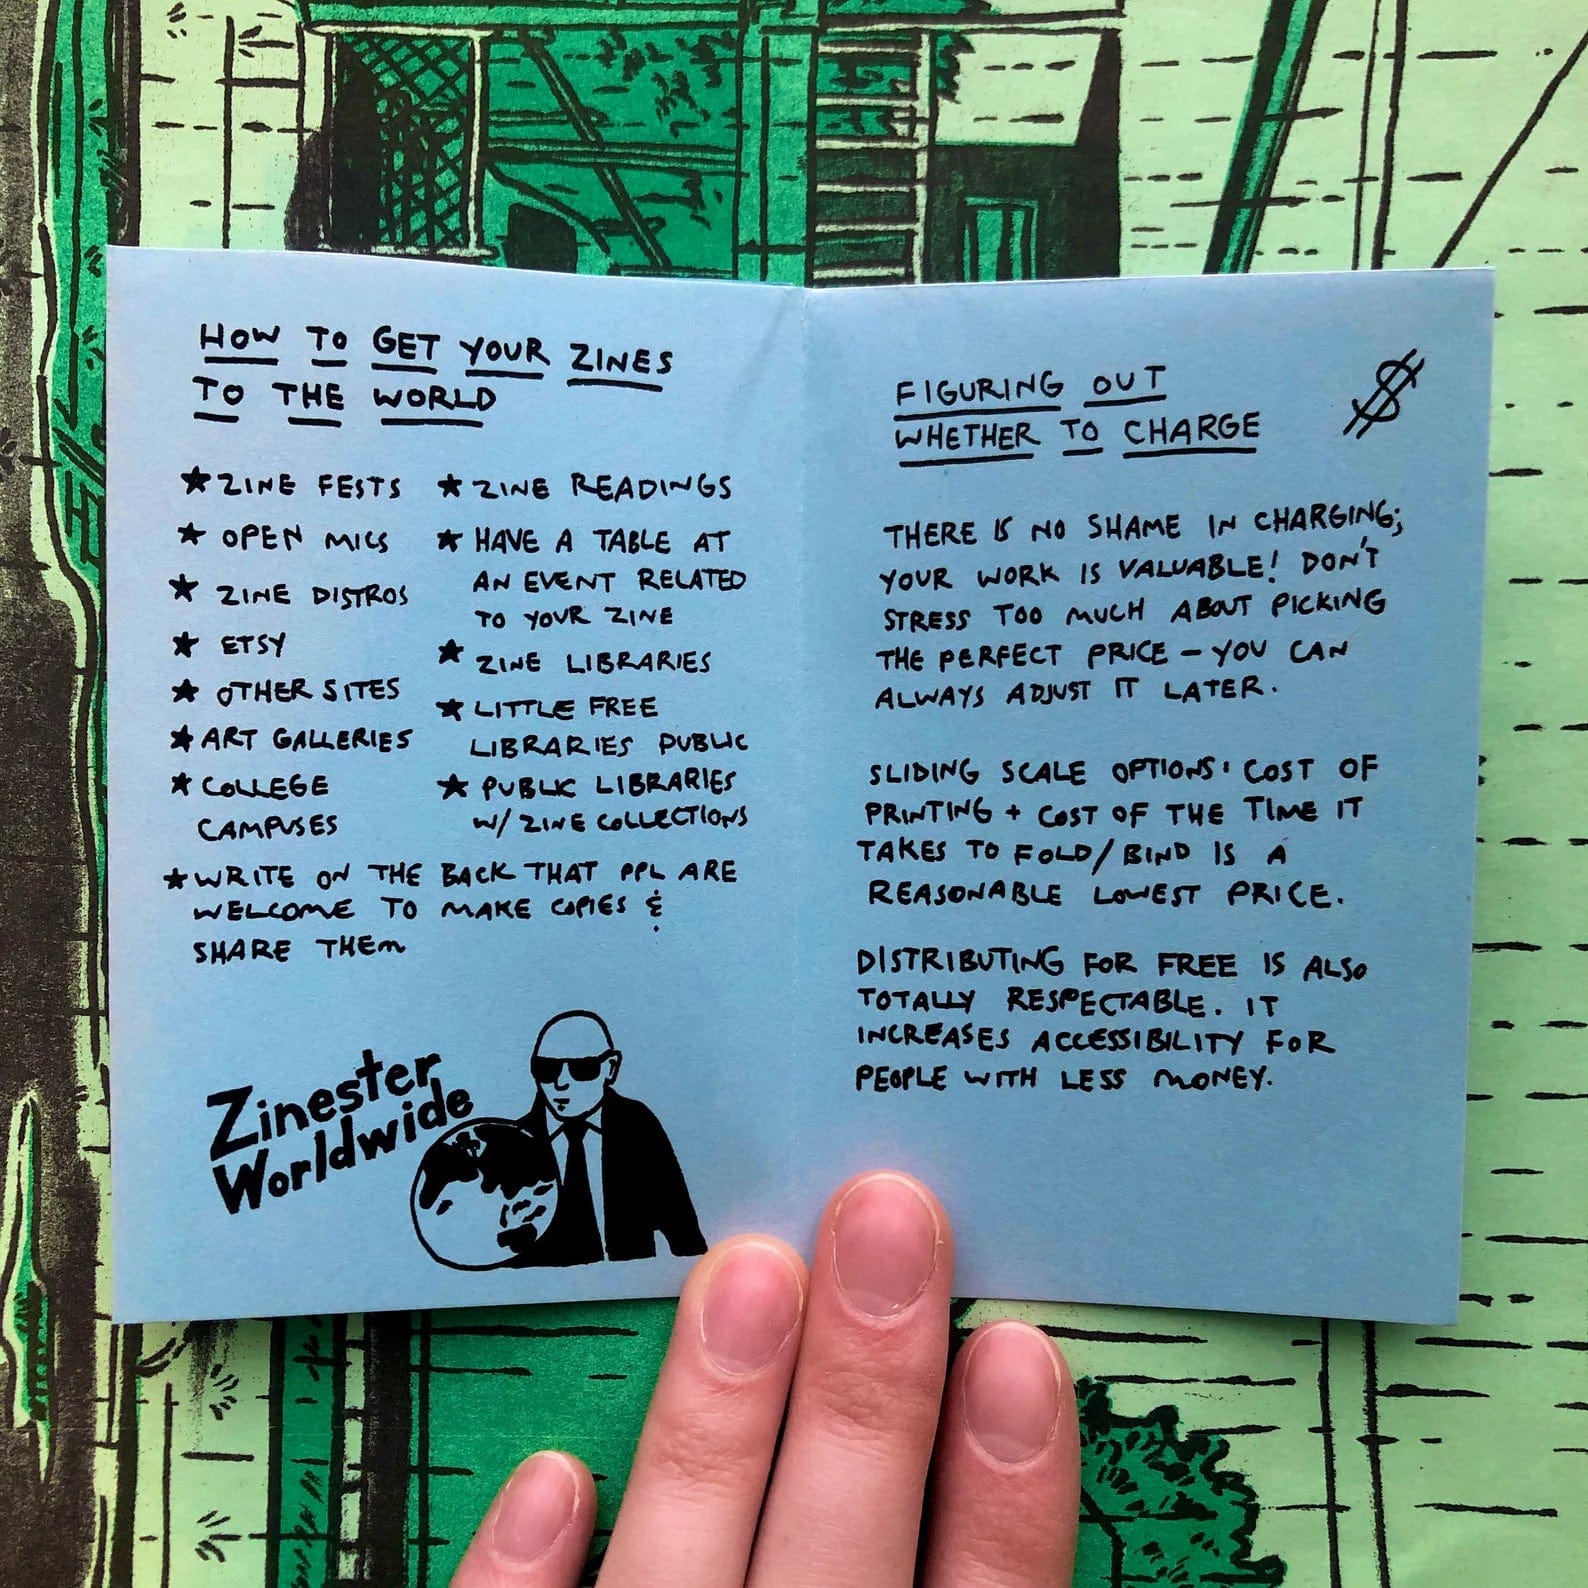 HOW TO GET YOUR ZINES
TO THE WORLD
★ ZINE FESTS
★ OPEN MICS
★ ZINE DISTROS
★ ETSY
★ OTHER SITES
★ ART GALLERIES
★ COLLEGE
CAMPUSES
★ ZINE READINGS
★ HAVE A TABLE AT
AN EVENT RELATED
TO YOUR ZINE
★ ZINE LIBRARIES
★ LITTLE FREE
LIBRARIES PUBLIC
★ PUBLIC LIBRARIES
W/ ZINE COLLECTIONS
★ WRITE ON THE BACK THAT PPL ARE
WELCOME TO MAKE COPIES &
SHARE THEM
Zinester
Worldwide
FIGURING OUT
WHETHER TO CHARGE
$
THERE IS NO SHAME IN CHARGING;
YOUR WORK IS VALUABLE! DON'T
STRESS TOO MUCH ABOUT PICKING
THE PERFECT PRICE – YOU CAN
ALWAYS ADJUST IT LATER.
SLIDING SCALE OPTIONS: COST OF
PRINTING + COST OF THE TIME IT
TAKES TO FOLD/BIND IS A
REASONABLE LOWEST PRICE.
DISTRIBUTING FOR FREE IS ALSO
TOTALLY RESPECTABLE. IT
INCREASES ACCESSIBILITY FOR
PEOPLE WITH LESS MONEY.